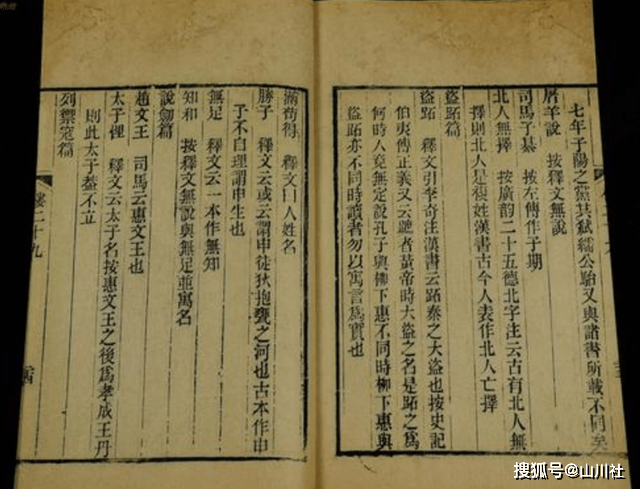 七年子陽之黨共弒繻公駘又與諸書所載不同矣
屠羊說　按釋文無說
司馬子綦　按左傳作子期
北人無擇　按廣韵二十五德北字注云古有北人無
擇則北人是複姓漢書古今人表作北人亡擇
盜跖篇
盜跖　釋文引李奇注漢書云跖秦之大盜也按史記
伯夷傳正義又云蹠者黃帝時大盜之名是跖之爲
何時人竟無定說孔子與柳下惠不同時柳下惠與
盜跖亦不同時讀者勿以寓言爲實也
滿苟得　釋文曰人姓名
勝子　釋文云或云謂申徒狄抱甕之河也古本作申
子不自理謂申生也
無足　釋文云一本作無知
知和　按釋文無說與無足並寓名
說劒篇
趙文王　司馬云惠文王也
太子悝　釋文云太子名按惠文王之後爲孝成王丹
則此太子葢不立
列禦寇篇
卷二十九
搜狐号@山川社